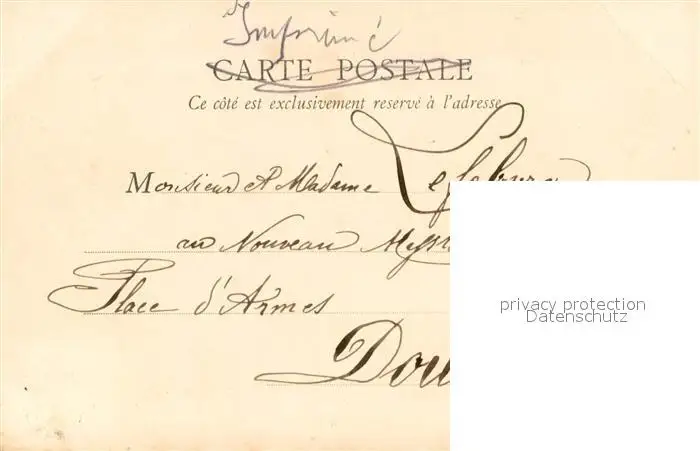 Imprimé
CARTE POSTALE
Ce côté est exclusivement reservé à l'adresse
Monsieur et Madame Lefebvre
au Nouveau
Place d'Armes
Dou
privacy protection
Datenschutz